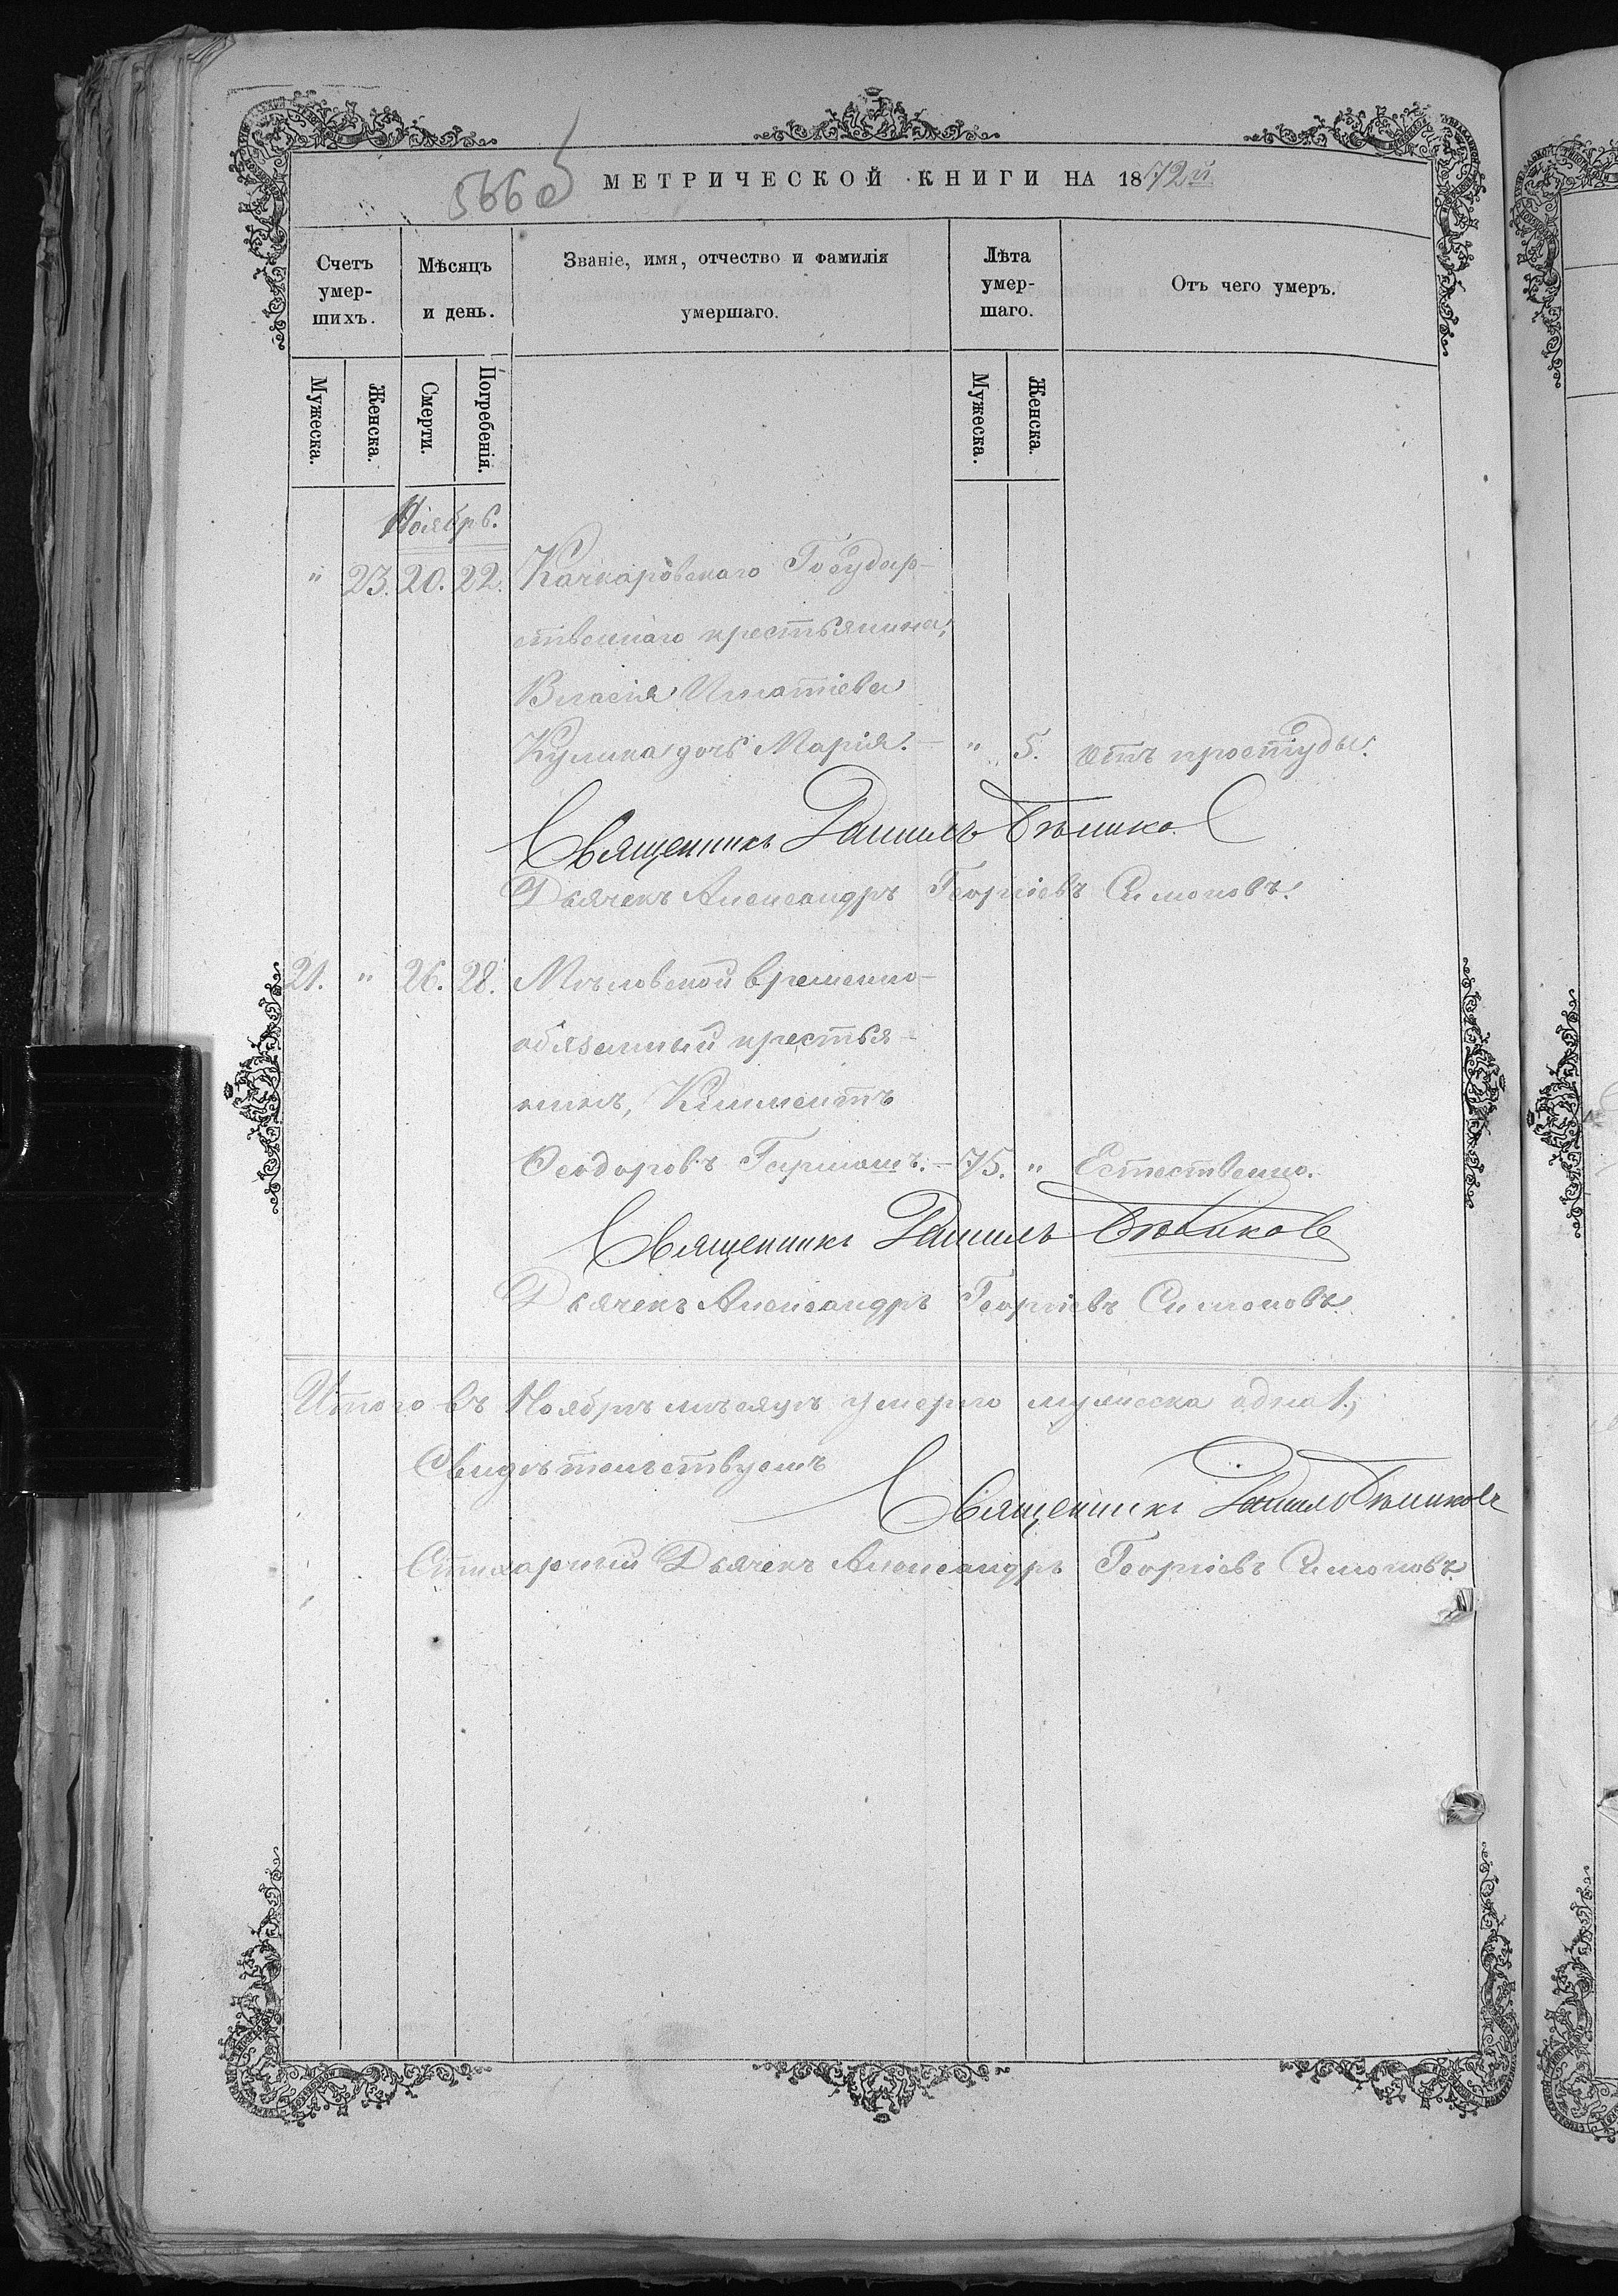 566 об
МЕТРИЧЕСКОЙ КНИГИ НА 1872й
Счетъ умер-шихъ.
Мѣсяцъ и день.
Званіе, имя, отчество и фамилія умершаго.
Лѣта умер-шаго.
Отъ чего умеръ.
Мужеска.
Женска.
Смерти.
Погребенія.
Мужеска.
Женска.
Ноябрь.
" 23. 20. 22. Качкаровскаго Государ-
ственнаго крестьянина,
Власія Игнатіева
Кулика дочь Марія. - " 5. Отъ простуды.
Священникъ Даніилъ Бѣликов
Дьячекъ Александръ Георгіевъ Симоновъ.
21. " 26. 28. Мѣловской временно-
обязанный крестья-
нинъ, Климентъ
Ѳеодоровъ Гармашъ. - 75. " Естественно.
Священникъ Даніилъ Бѣликов
Дьячекъ Александръ Георгіевъ Симоновъ.
Итого въ Ноябрѣ мѣсяцѣ умерло мужеска одна 1,
Свидѣтельствуемъ
Священникъ Даніилъ Бѣликовъ
Стихарный Дьячекъ Александръ Георгіевъ Симоновъ